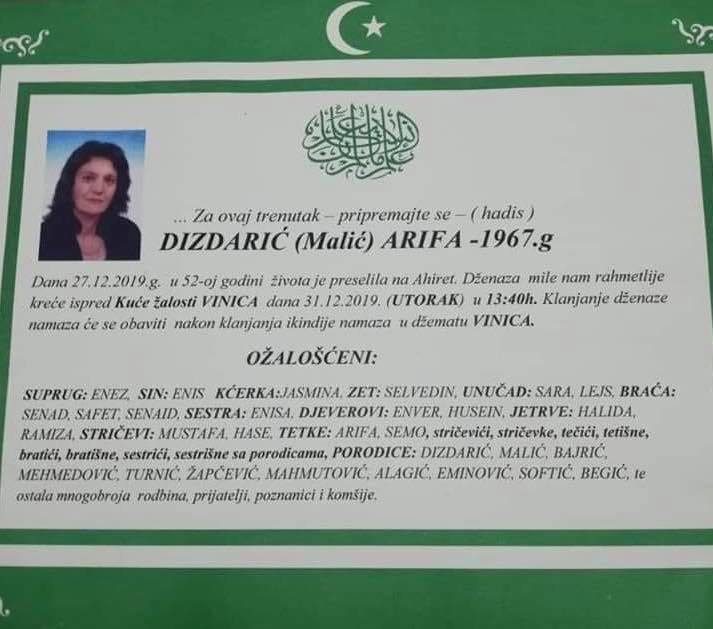 ... Za ovaj trenutak – pripremajte se – ( hadis )
DIZDARIĆ (Malić) ARIFA -1967.g
Dana 27.12.2019.g. u 52-oj godini života je preselila na Ahiret. Dženaza mile nam rahmetlije
kreće ispred Kuće žalosti VINICA dana 31.12.2019. (UTORAK) u 13:40h. Klanjanje dženaze
namaza će se obaviti nakon klanjanja ikindije namaza u džematu VINICA.
OŽALOŠĆENI:
SUPRUG: ENEZ, SIN: ENIS KĆERKA:JASMINA, ZET: SELVEDIN, UNUČAD: SARA, LEJS, BRAĆA:
SENAD, SAFET, SENAID, SESTRA: ENISA, DJEVEROVI: ENVER, HUSEIN, JETRVE: HALIDA,
RAMIZA, STRIČEVI: MUSTAFA, HASE, TETKE: ARIFA, SEMO, stričevići, stričevke, tečići, tetišne,
bratići, bratišne, sestrići, sestrišne sa porodicama, PORODICE: DIZDARIĆ, MALIĆ, BAJRIĆ,
MEHMEDOVIĆ, TURNIĆ, ŽAPČEVIĆ, MAHMUTOVIĆ, ALAGIĆ, EMINOVIĆ, SOFTIĆ, BEGIĆ, te
ostala mnogobroja rodbina, prijatelji, poznanici i komšije.